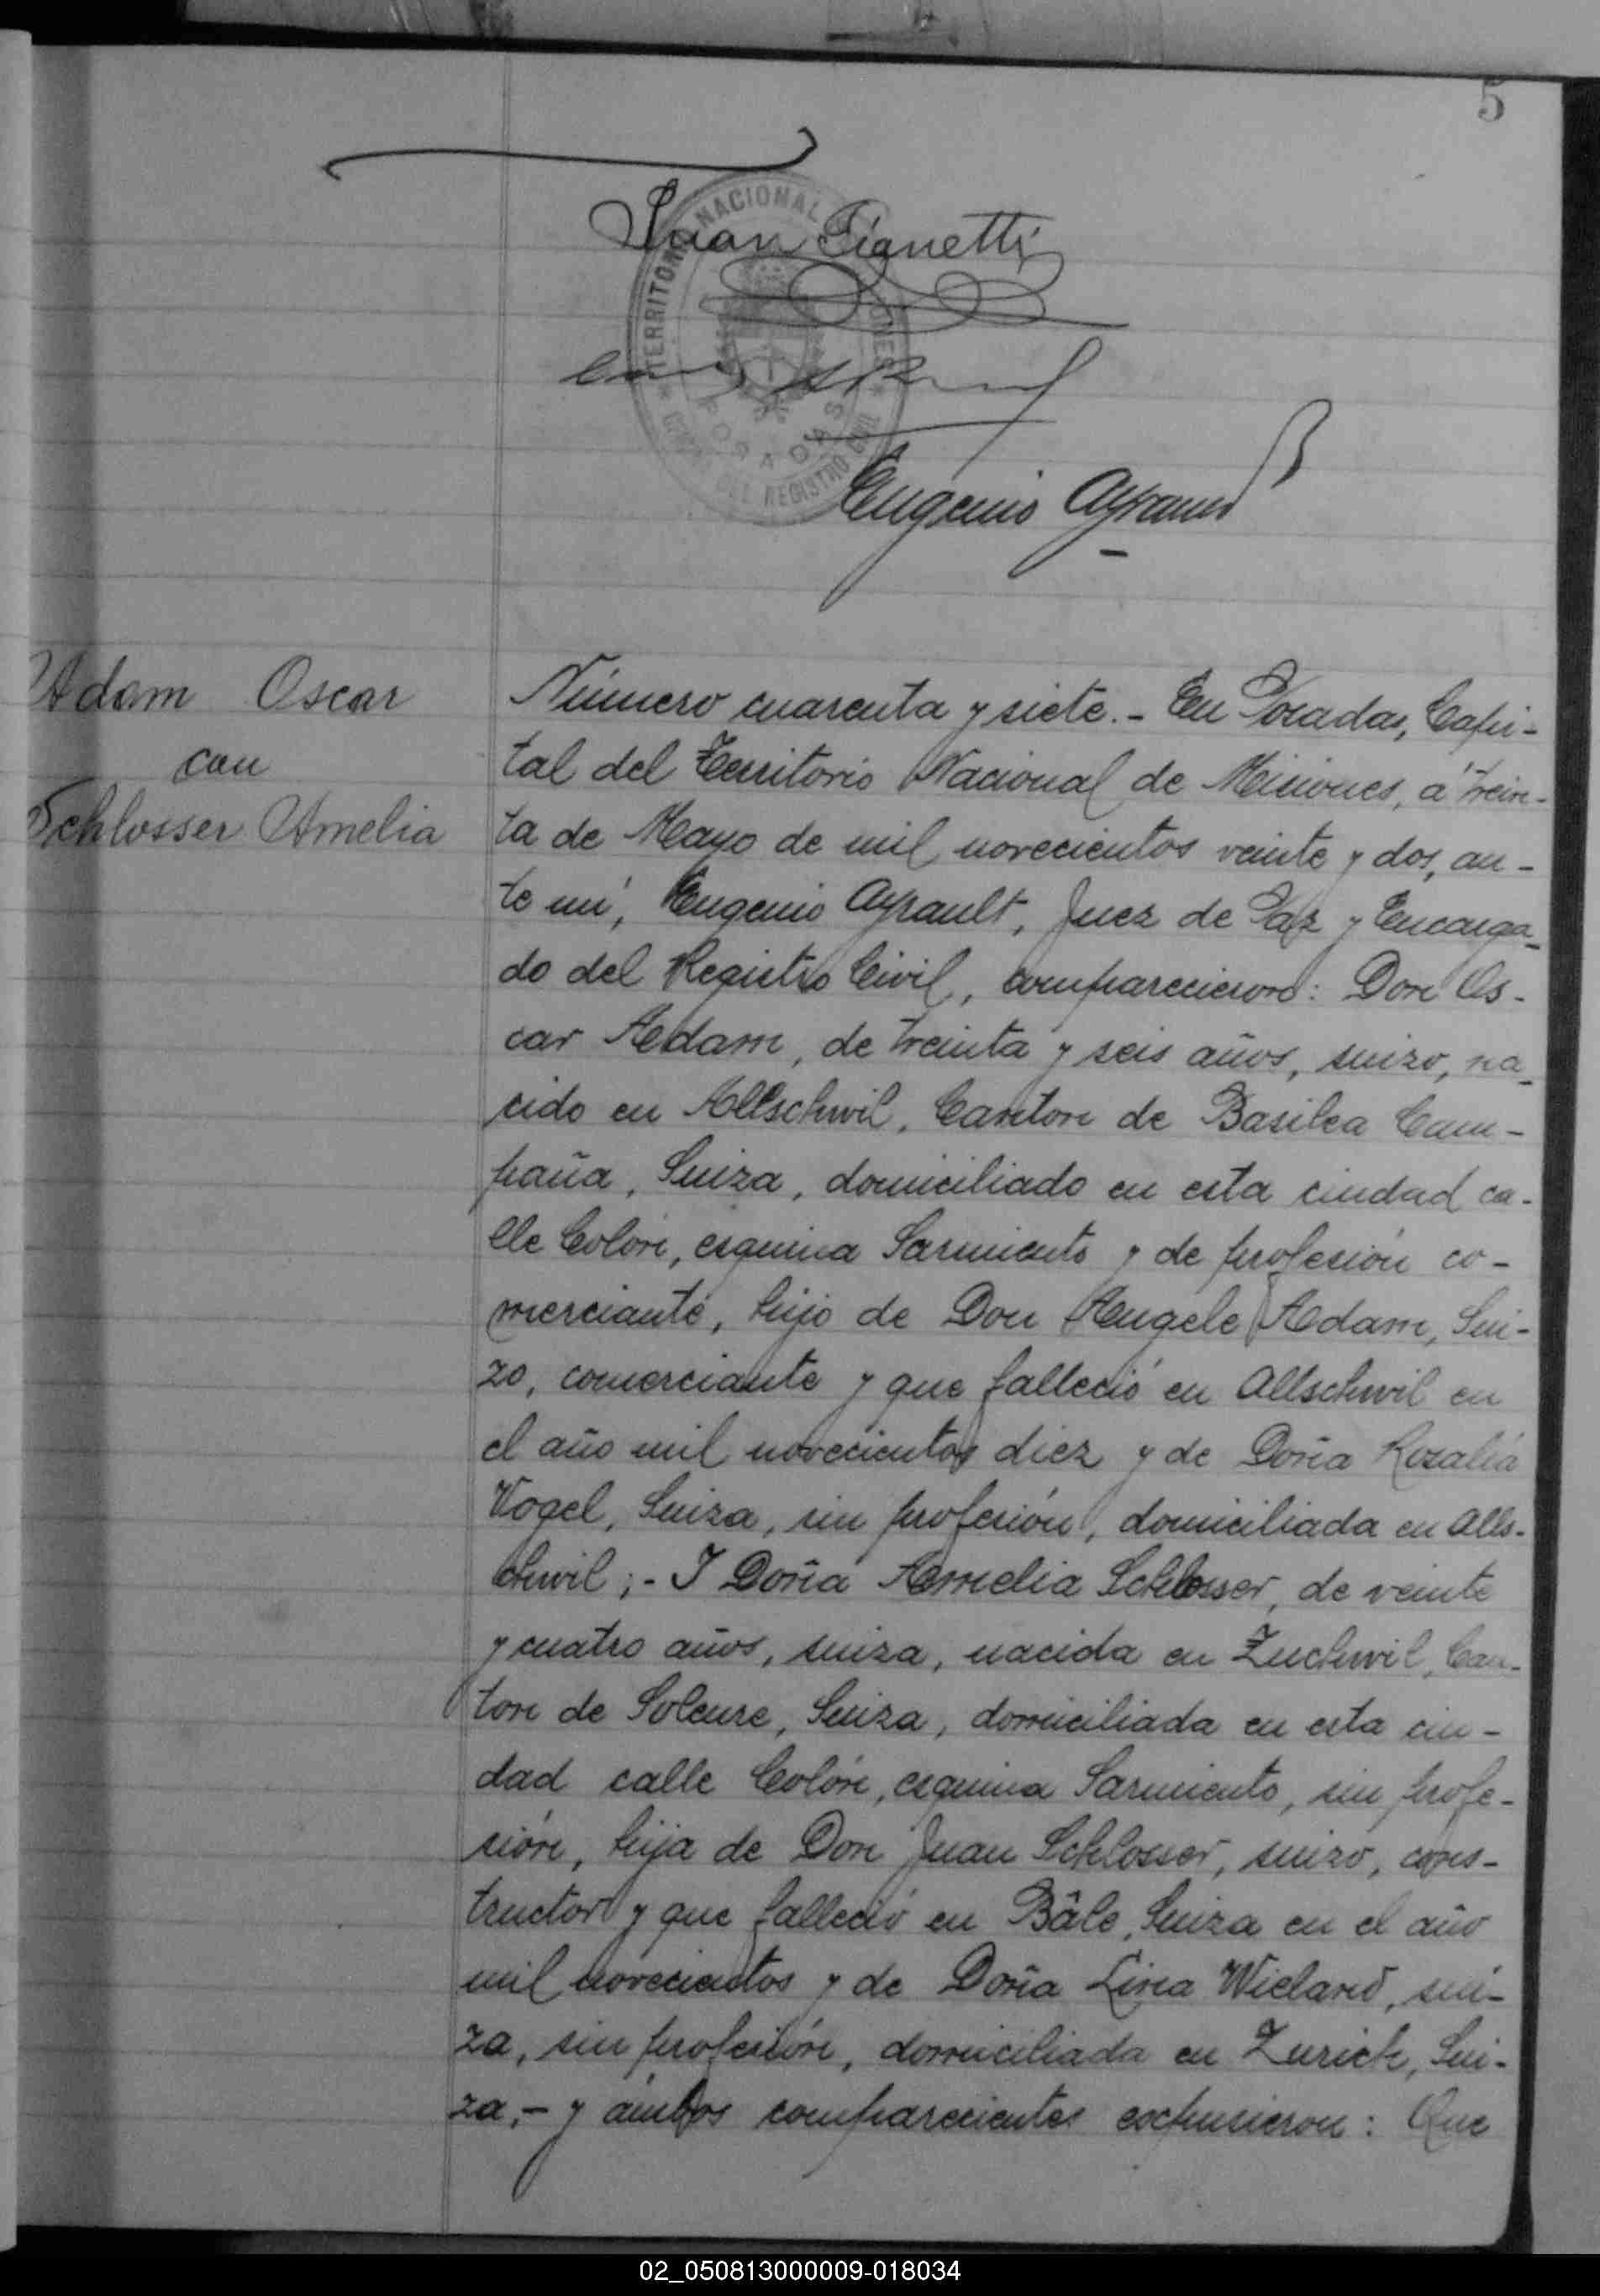 5
TERRITORIO NACIONAL
POSADAS
DEL REGISTRO CIVIL
Juan Pianetti
Eugenio Ayrault
Adam Oscar
con
Schlosser Amelia
Número cuarenta y siete.- En Posadas, Capi-
tal del Territorio Nacional de Misiones, á trein-
ta de Mayo de mil novecientos veinte y dos, an-
te mí, Eugenio Ayrault, Juez de Paz y Encarga-
do del Registro Civil, comparecieron: Don Os-
car Adam, de treinta y seis años, suizo, na-
cido en Allschwil, Canton de Basilea Cam-
paña, Suiza, domiciliado en esta ciudad ca-
lle Colón, esquina Sarmiento y de profesión co-
merciante, hijo de Don Angele Adam, Sui-
zo, comerciante y que falleció en Allschwil en
el año mil novecientos diez y de Doña Rosalia
Vogel, Suiza, sin profesión, domiciliada en Alls-
chwil;- I Doña Amelia Schlosser, de veinte
y cuatro años, suiza, nacida en Zuchwil, Can-
ton de Soleure, Suiza, domiciliada en esta ciu-
dad calle Colón, esquina Sarmiento, sin profe-
sión, hija de Don Juan Schlosser, suizo, cons-
tructor y que falleció en Bâle, Suiza en el año
mil novecientos y de Doña Lina Wieland, sui-
za, sin profesión, domiciliada en Zurich, Sui-
za,- y ambos comparecientes expusieron: Que
02_050813000009-018034